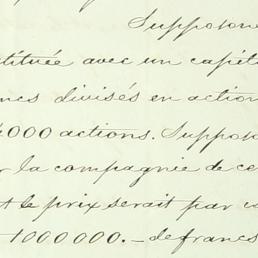 Supposons
stituée avec un capit
ncs divisés en action
4000 actions. Suppos
r la compagnie de ce
t le prix serait par
1000000. - de francs